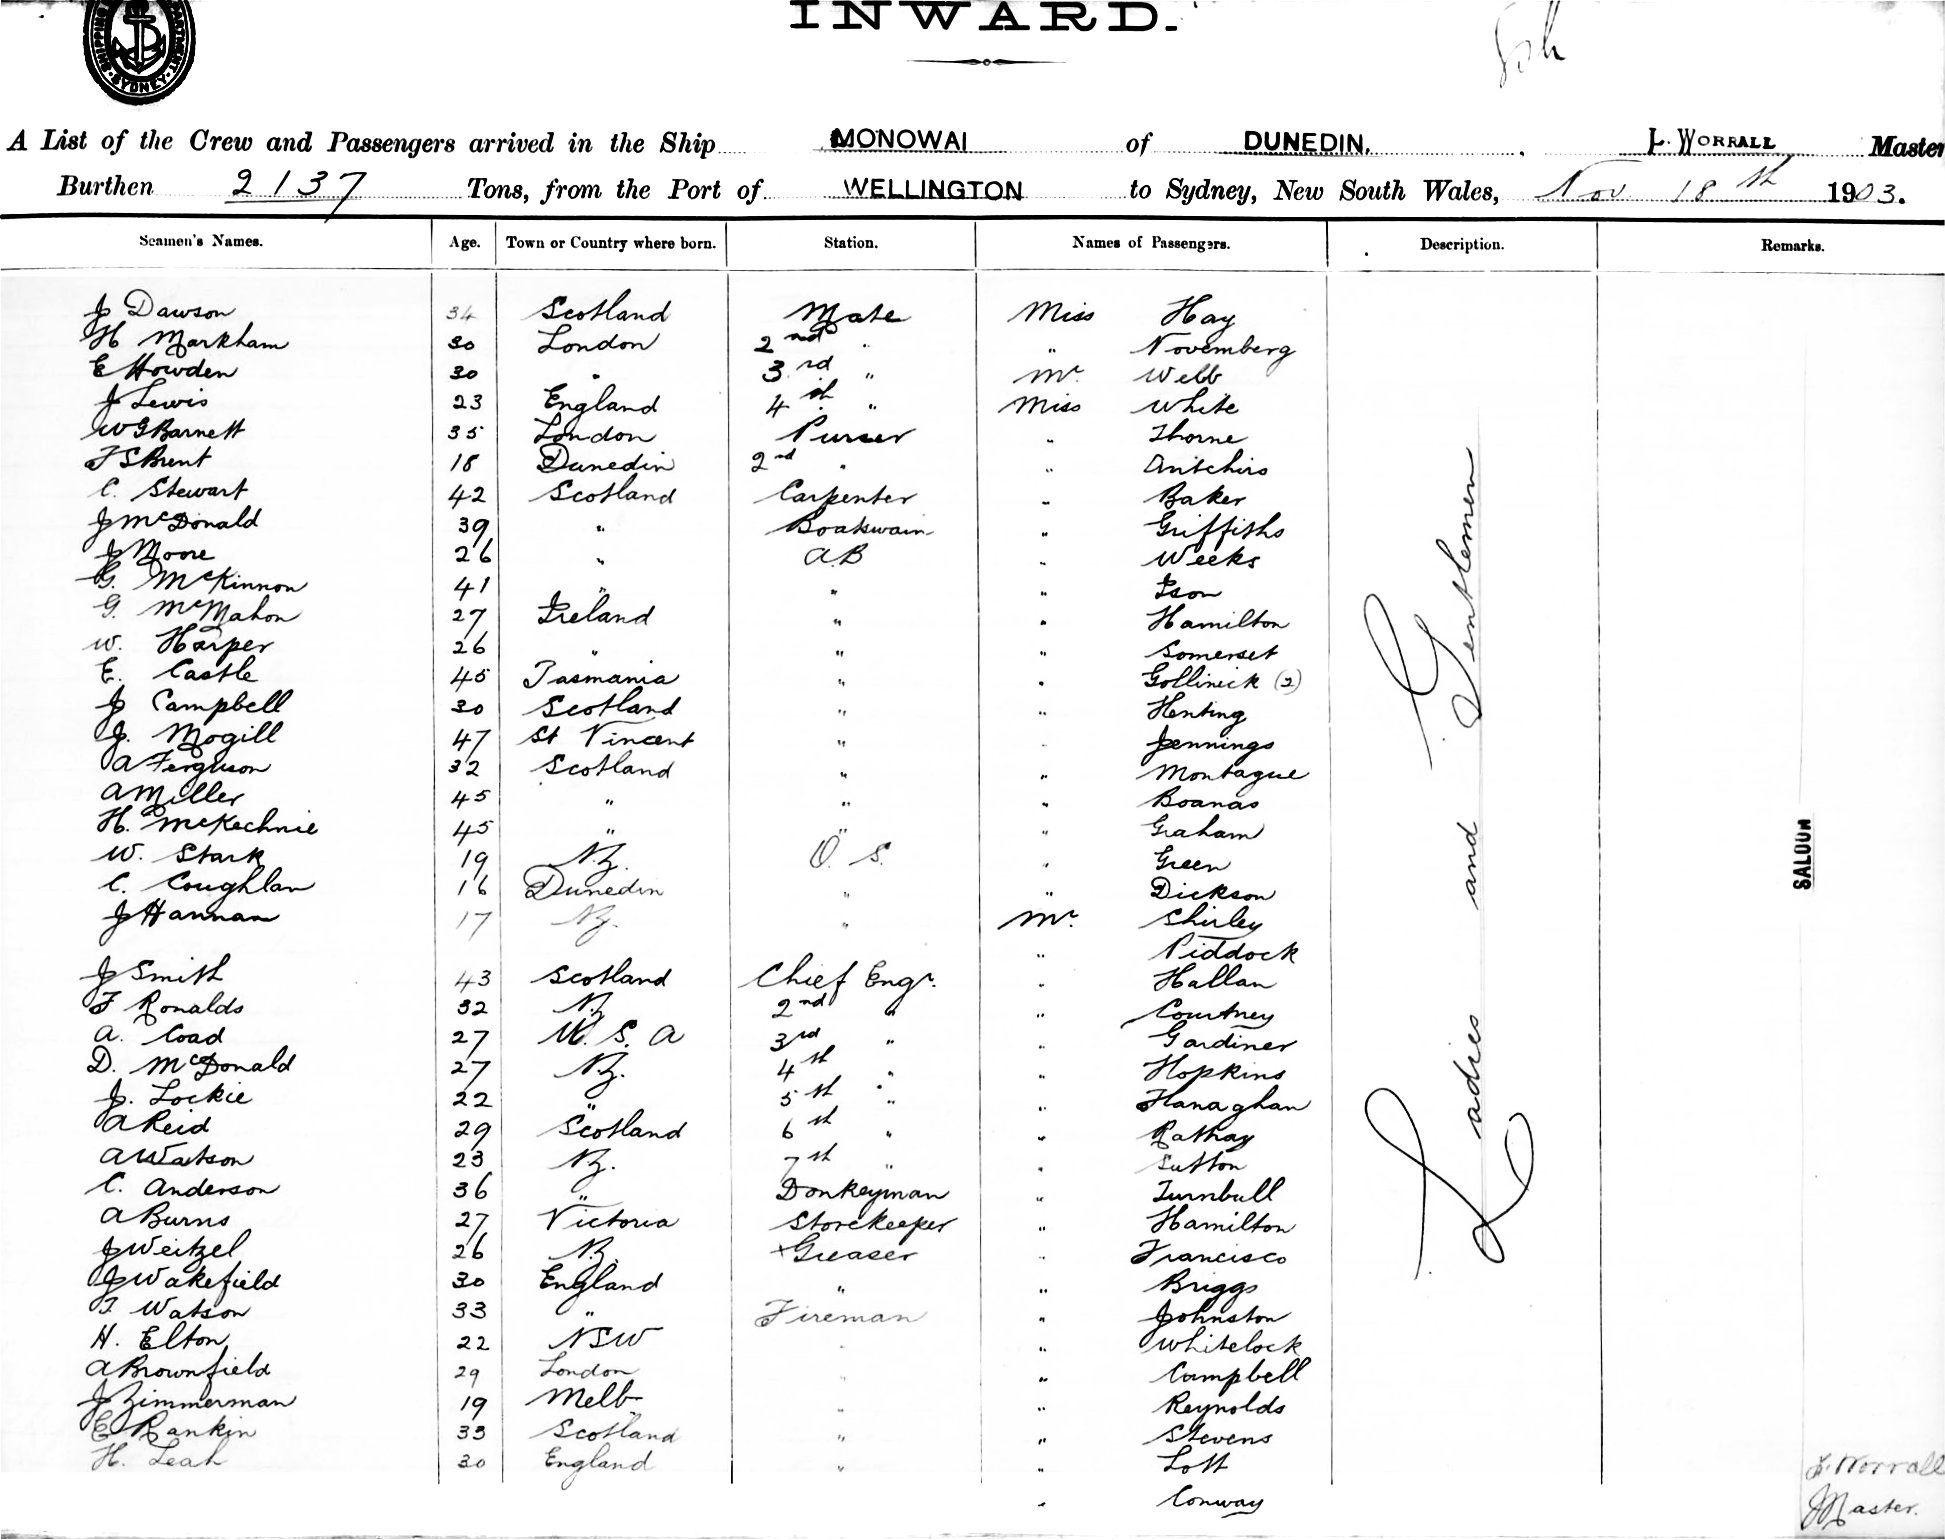 INWARD.
SHIPPING DEPARTMENT · SYDNEY ·
A List of the Crew and Passengers arrived in the Ship MONOWAI of DUNEDIN, L. WORRALL Master
Burthen 2137 Tons, from the Port of WELLINGTON to Sydney, New South Wales, Nov 18th 1903.
Seamen's Names. Age. Town or Country where born. Station. Names of Passengers. Description. Remarks.
J Dawson 34 Scotland Mate Miss Hay
H Markham 30 London 2nd " " Novemberg
E Howden 30 " 3rd " Mr. Webb
J Lewis 23 England 4th " Miss White
W G Barnett 35 London Purser " Thorne
F S Brent 18 Dunedin 2nd " "
C. Stewart 42 Scotland Carpenter " Baker
J McDonald 39 " Boatswain " Griffiths
J Moore 26 " A.B " Weeks
G. McKinnon 41 " " " Ison
G. McMahon 27 Ireland " " Hamilton
W. Harper 26 " " " Somerset
E. Castle 45 Tasmania " " Gollinick (2)
J Campbell 30 Scotland " " Henting
J. Mogill 47 St Vincent " " Jennings
A Ferguson 32 Scotland " " Montague
A Miller 45 " " " Boanas
H. McKechnie 45 " " " Graham
W. Stark 19 N.Z. O. S. " Green
C. Coughlan 16 Dunedin " " Dickson
J Hannan 17 N.Z. " Mr. Shirley
" Piddock
J Smith 43 Scotland Chief Engr. " Hallan
F Ronalds 32 N.Z 2nd " " Courtney
A. Coad 27 U. S. A 3rd " " Gardiner
D. McDonald 27 N.Z. 4th " " Hopkins
J. Lockie 22 " 5th " " Hanaghan
A Reid 29 Scotland 6th " " Rathay
A Watson 23 N.Z. 7th " " Sutton
C. Anderson 36 " Donkeyman " Turnbull
A Burns 27 Victoria Storekeeper " Hamilton
J Weitzel 26 N.Z. Greaser " Francisco
J Wakefield 30 England " " Briggs
T. Watson 33 " Fireman " Johnston
H. Elton 22 NSW " " Whitelock
A Brownfield 29 London " " Campbell
J Zimmerman 19 Melb " " Reynolds
E Rankin 33 Scotland " " Stevens
H. Leah 30 England " " Lott
" Conway
Ladies and Gentlemen
SALOON
L. Worrall
Master.